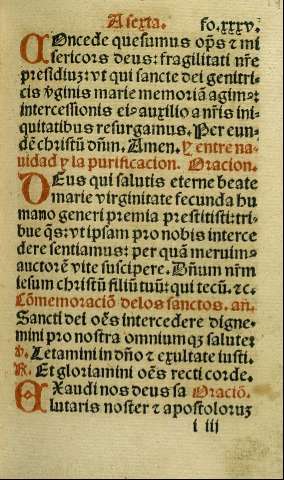 A sexta. fo.xxxv.
COncede quesumus op̄s ⁊ mi
sericors deus: fragilitati nr̄e
presidiuz: vt qui sancte dei genitri
cis v̄ginis marie memoriā agim⁹:
intercessionis ei⁹ auxilio a nr̄is ini⸗
quitatibus resurgamus. Per eun⸗
dē christū dn̄m. Amen. Y entre na⸗
uidad y la purificacion. Oracion.
DEus qui salutis eterne beate
marie virginitate fecunda hu
mano generi premia prestitisti: tri⸗
bue q̄s: vt ipsam pro nobis interce
dere sentiamus: per quā meruim⁹
auctorē vite suscipere. Dn̄um nr̄m
iesum christū filiū tuū: qui tecū. ⁊c.
Cōmemoraciō de los sanctos. añ.
Sancti dei oēs intercedere digne⸗
mini pro nostra omnium qꝫ salute:
v̄. Letamini in dn̄o ⁊ exultate iusti.
R̄. Et gloriamini oēs recti corde.
EXaudi nos deus sa Oraciō.
lutaris noster ⁊ apostoloruz
i iii